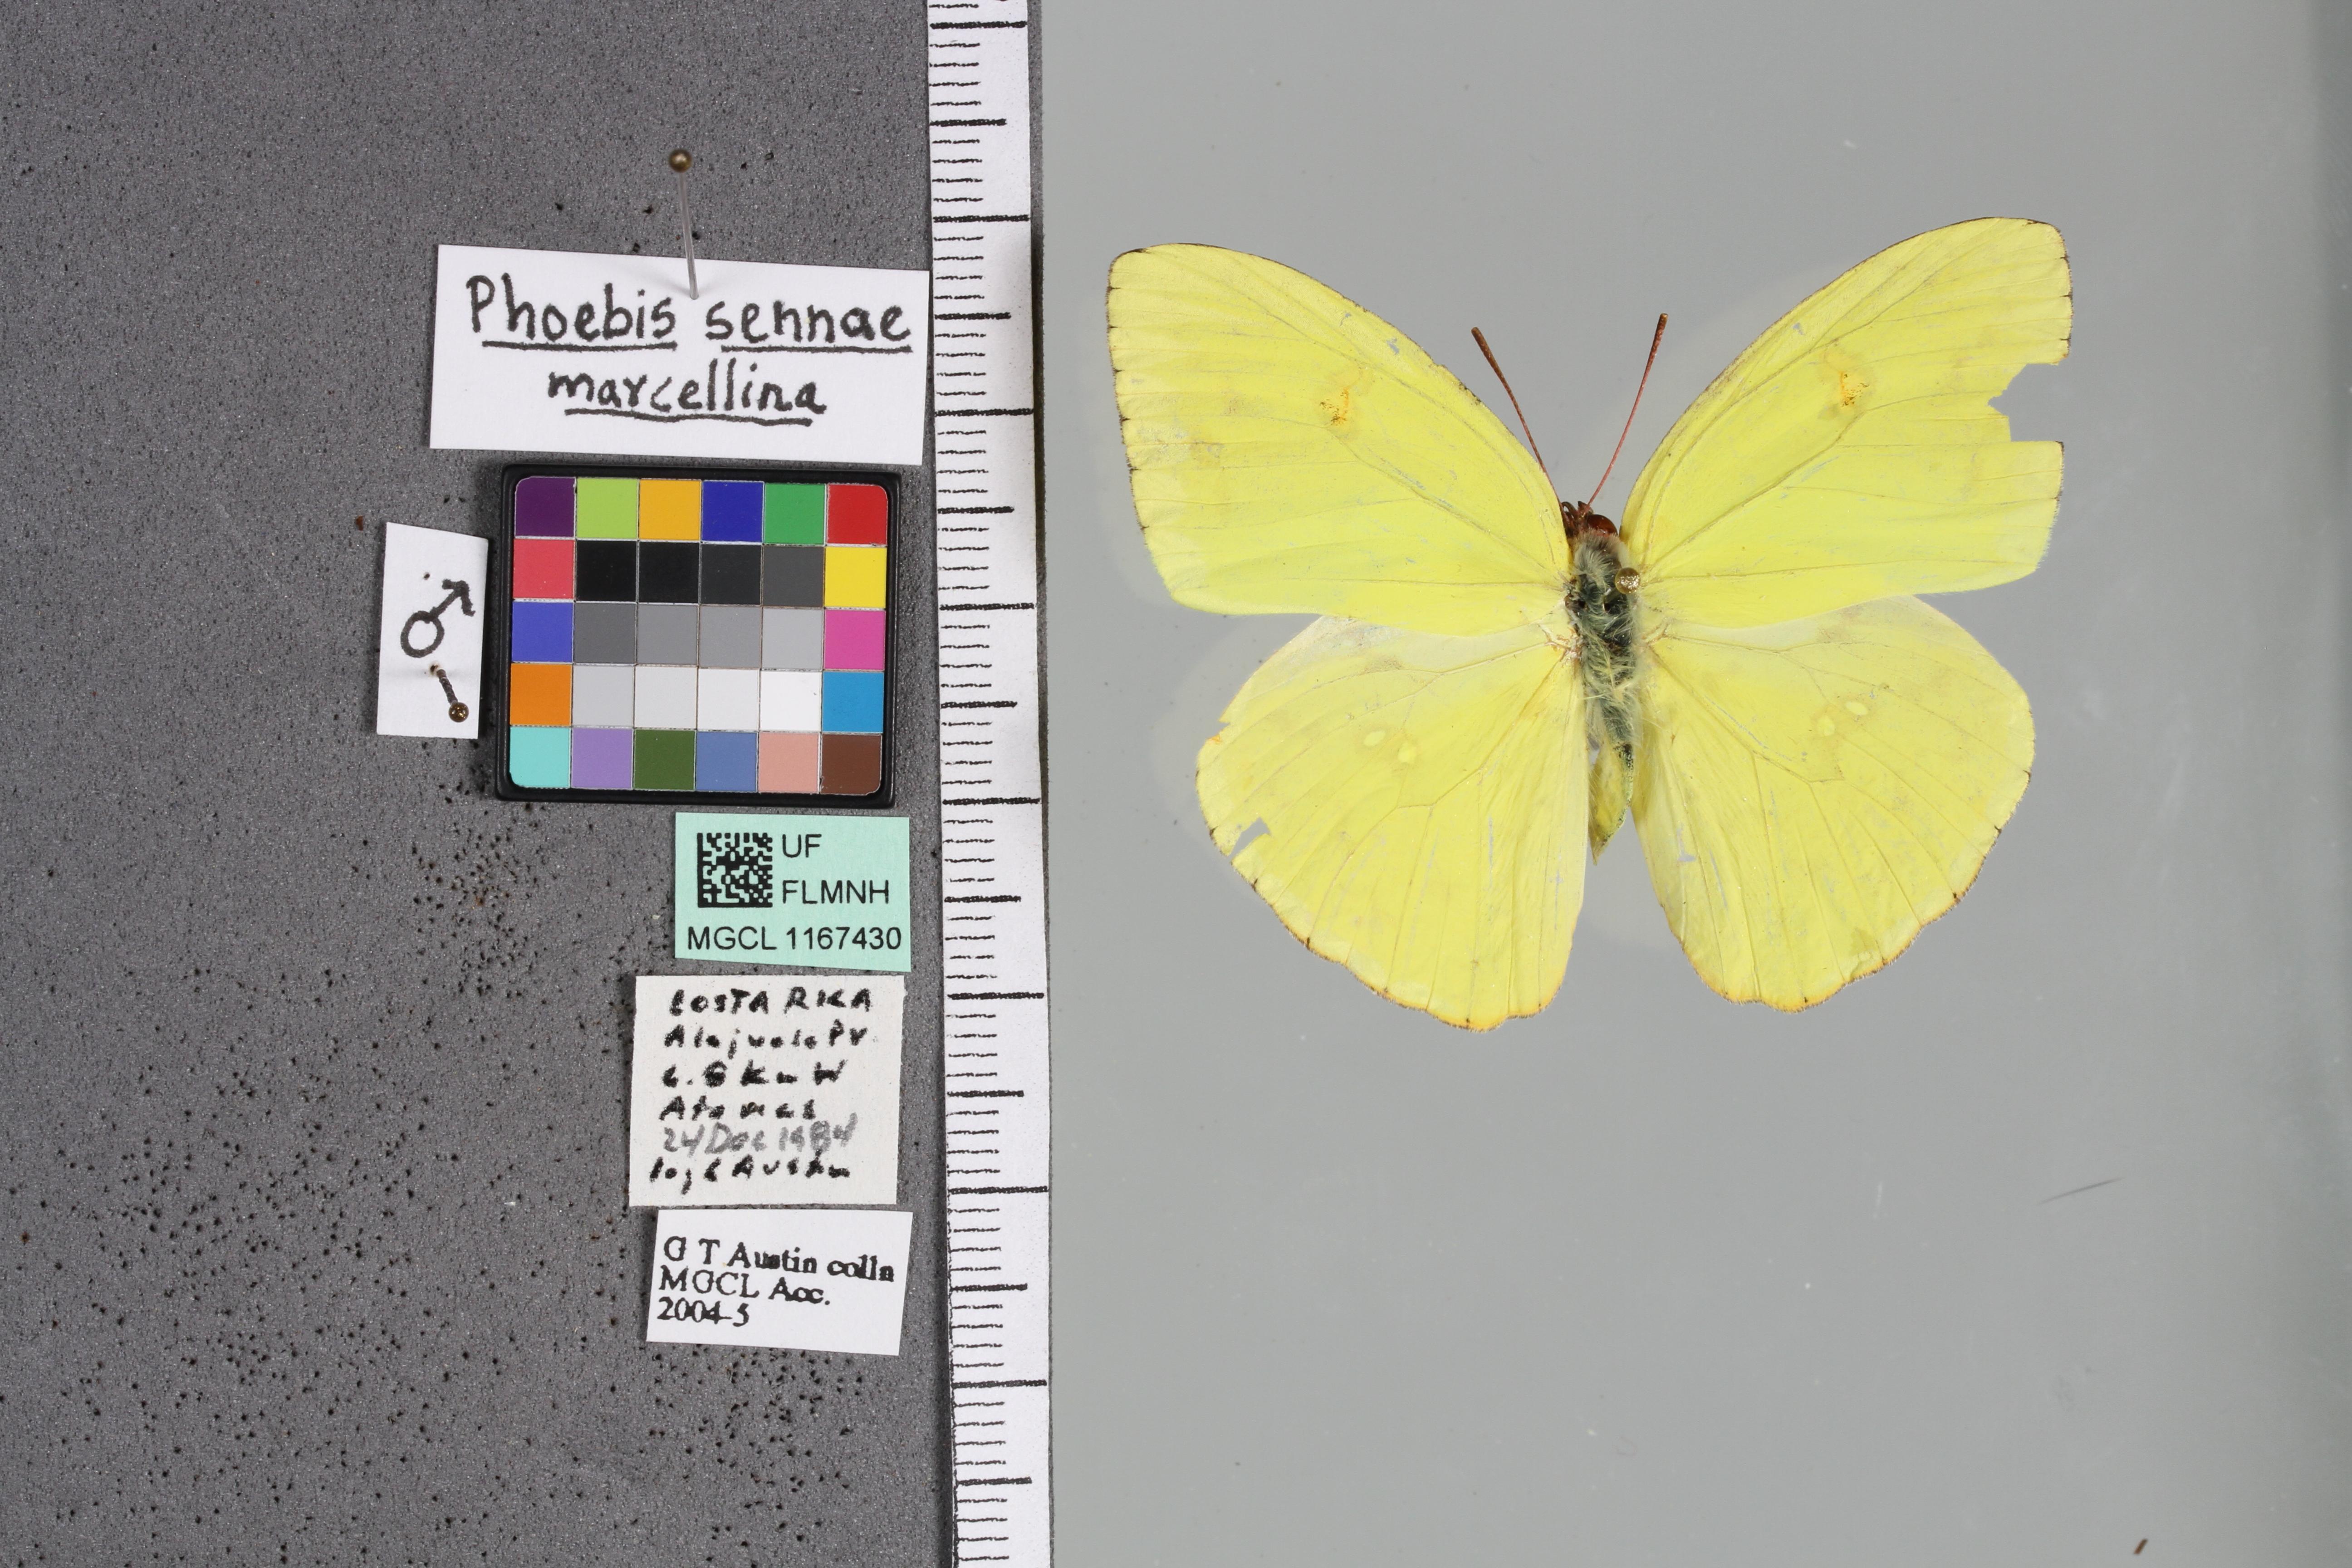 Phoebis sennae
marcellina
♂
UF
FLMNH
MGCL 1167430
COSTA RICA
Alajuela Pr
c. 8 km W
Atenas
24 Dec 1984
leg G Austin
G T Austin colln
MGCL Acc.
2004-5